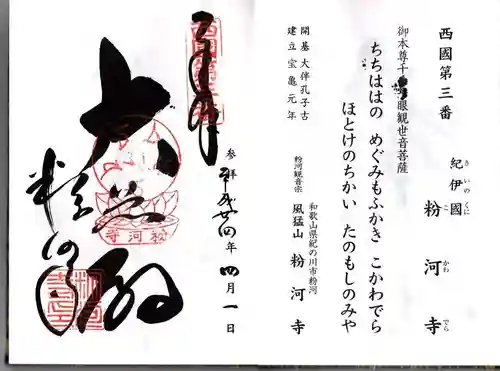 西國第三番
紀伊國 粉河寺
きいのくに こかわでら
御本尊千手千眼観世音菩薩
ちちははの めぐみもふかき こかわでら
ほとけのちかい たのもしのみや
開基 大伴孔子古
建立 宝亀元年
和歌山県紀の川市粉河
粉河観音宗 風猛山 粉河寺
奉拝
大悲殿
粉河寺
参拝 平成廿四年 四月一日
粉河寺